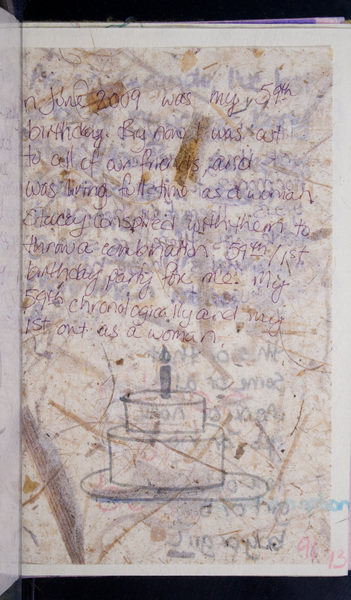 n June 2009 was my 59th
birthday. By now I was out
to all of our friends, and
was living full time as a woman.
Stacey conspired with them to
throw a combination 59th / 1st
birthday party for me. My
59th chronologically and my
1st out as a woman.